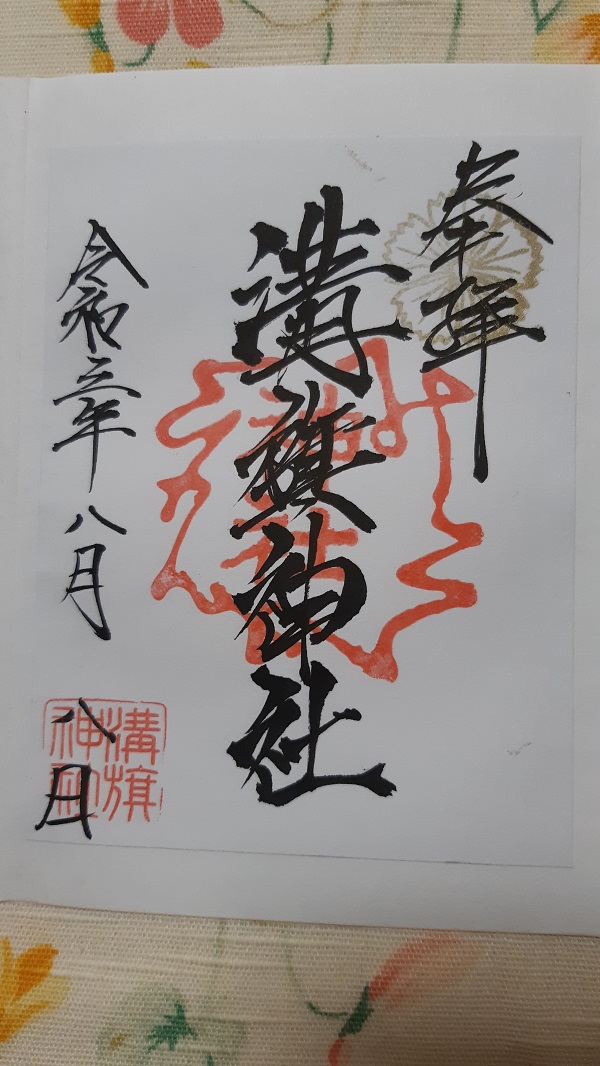 奉拝
溝旗神社
令和三年八月
八日
溝旗
神社